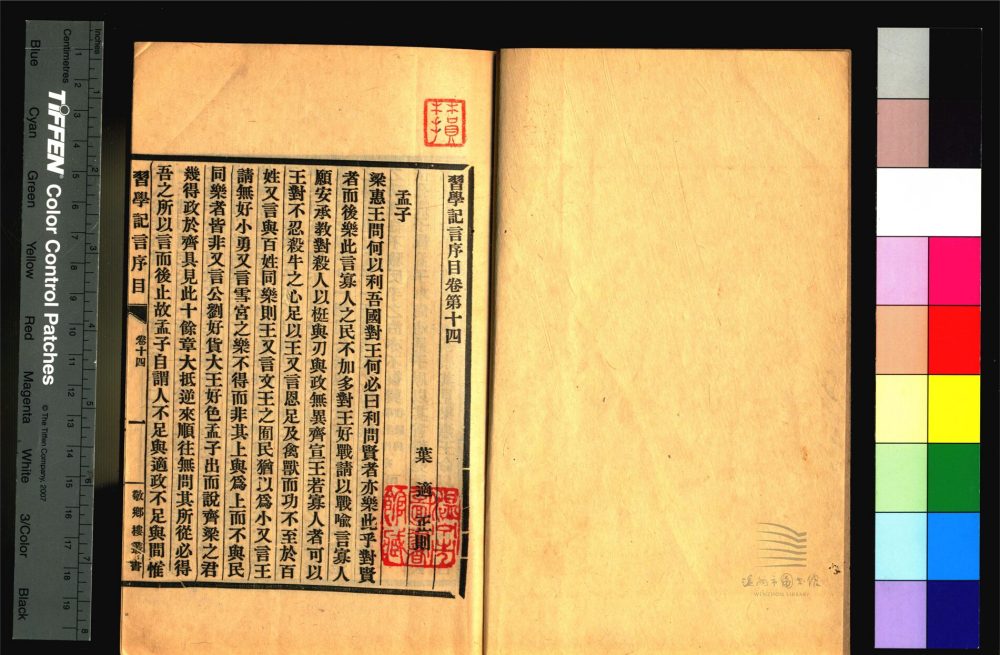 習學記言序目卷第十四
葉適正則
孟子
梁惠王問何以利吾國對王何必曰利問賢者亦樂此乎對賢
者而後樂此言寡人之民不加多對王好戰請以戰喻言寡人
願安承教對殺人以梃與刃與政無異齊宣王若寡人者可以
王對不忍殺牛之心足以王又言恩足及禽獸而功不至於百
姓又言與百姓同樂則王又言文王之囿民猶以爲小又言王
請無好小勇又言雪宮之樂不得而非其上與爲上而不與民
同樂者皆非又言公劉好貨大王好色孟子出而說齊梁之君
幾得政於齊具見此十餘章大抵逆來順往無問其所從必得
吾之所以言而後止故孟子自謂人不足與適政不足與間惟
習學記言序目
卷十四
一
敬鄉樓叢書
溫州市圖書館
WENZHOU LIBRARY
Inches
Centimetres
TIFFEN Color Control Patches
© The Tiffen Company, 2007
Blue
Cyan
Green
Yellow
Red
Magenta
White
3/Color
Black
1 2 3 4 5 6 7 8 9 10 11 12 13 14 15 16 17 18 19
1 2 3 4 5 6 7 8